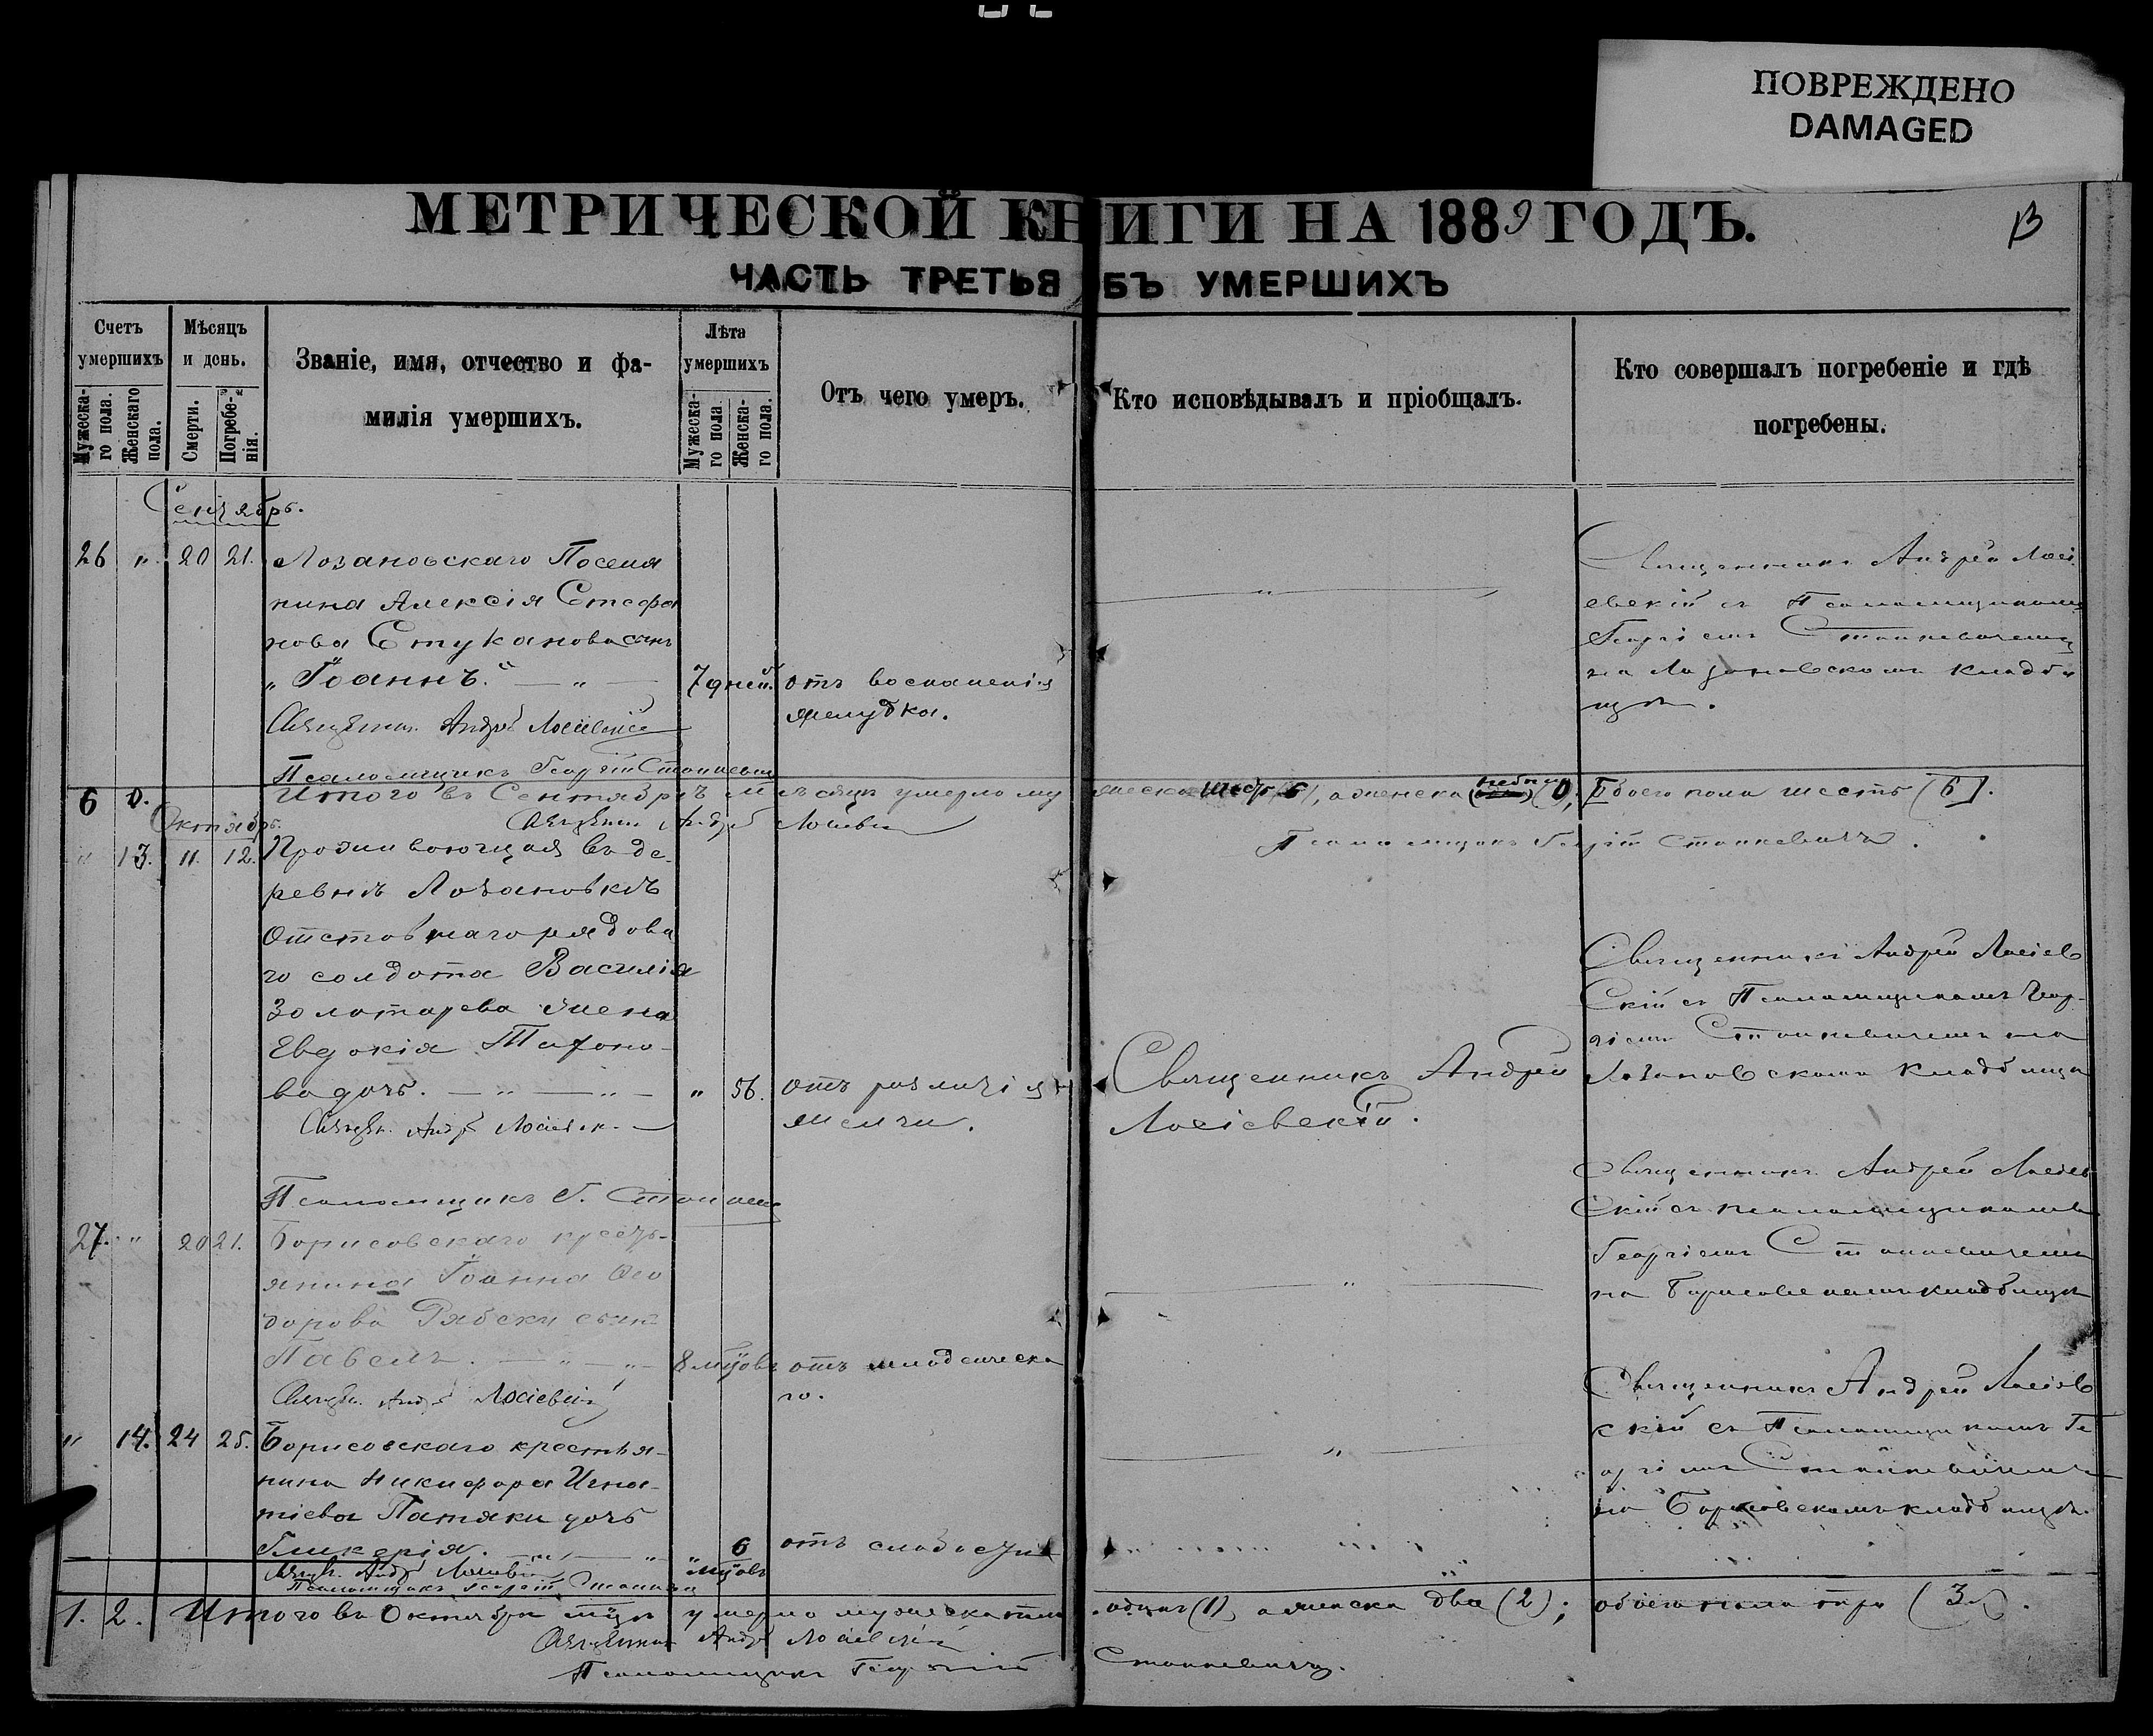 ПОВРЕЖДЕНО
DAMAGED
МЕТРИЧЕСКОЙ КНИГИ НА 1889 ГОДЪ.
13
ЧАСТЬ ТРЕТЬЯ ОБЪ УМЕРШИХЪ
Счетъ умершихъ
Мужеска-го пола.
Женскаго пола.
Мѣсяцъ и день.
Смерти.
Погребе-нія.
Званіе, имя, отчество и фа-
милія умершихъ.
Лѣта умершихъ
Мужеска-го пола
Женска-го пола.
Отъ чего умеръ.
Кто исповѣдывалъ и пріобщалъ.
Кто совершалъ погребеніе и гдѣ
погребены.
Сентябрь.
26 " 20 21. Лозановскаго Поселя
нина Алексія Стефа
нова Стуканова сынъ
"Іоаннъ." — " —
7 дней.
отъ воспаленія
желудка.
Священникъ Андрей Лосі
евскій съ Псаломщикомъ
Георгіемъ Станкевичемъ
на Лозановскомъ кладби
щѣ.
Священник Андрей Лосіевскій
Псаломщикъ Георгій Станкевич
6 0. Итого въ Сентябрѣ мѣсяцѣ умерло му жеска шесть 6, а женска (0), обоего пола шесть (6).
Октябрь.
Священник Андрей Лосіевскій
Псаломщикъ Георгій Станкевичъ.
" 13. 11. 12. Проживающая въ де-
ревнѣ Лозановкѣ
отставнаго рядова
го солдата Василія
Золотарева жена
Евдокія
ва дочь. — " — " —
" 56.
отъ разлитія
желчи.
Священникъ Андрей
Лосіевскій.
Священникъ Андрей Лосіев
скій съ Псаломщикомъ Геор-
гіемъ Станкевичемъ на
Лозановскомъ кладбищѣ
Священ. Андр. Лосіевск.
Псаломщикъ Г. Станкевич
27. " 20 21. Борисовскаго кресть-
янина Іоанна Ѳео
дорова Рябеки сынъ
Павелъ. — " — " —
8 мцовъ
отъ младенческа
го.
Священникъ Андрей Лосіев
скій съ псаломщикомъ
Георгіемъ Станкевичемъ
на Борисовскомъ кладбищѣ
Священ. Андр. Лосіевскій
" 14. 24 25. Борисовскаго крестья-
нина Никифора Игна-
тіева Патяки дочь
Гликерія. — " —
" 6 мцовъ
отъ слабости
Священникъ Андрей Лосіев
скій съ Псаломщикомъ Ге
оргіемъ Станкевичемъ
на Борисовскомъ кладбищѣ.
Священ. Андр. Лосіевскій
Псаломщикъ Георгій Станкевич
1. 2. Итого въ Октябрѣ мцѣ умерло мужеска пола одинъ (1), а женска два (2); обоего пола три (3).
Священникъ Андрей Лосіевскій
Псаломщикъ Георгій Станкевичъ.